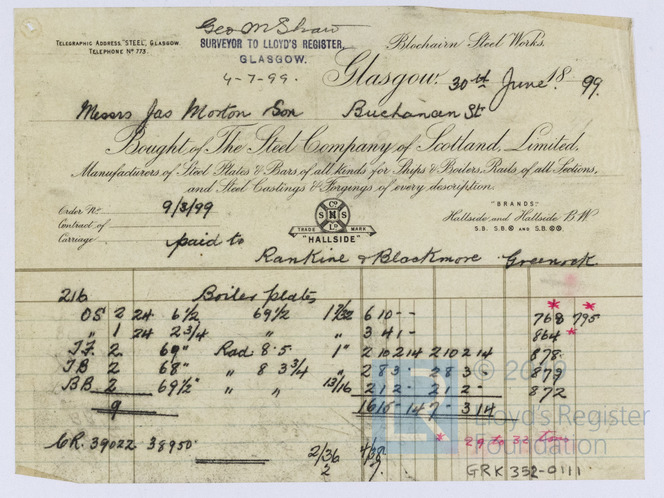 Geo M Shaw
TELEGRAPHIC ADDRESS, "STEEL", GLASGOW.
TELEPHONE Nº 773.
SURVEYOR TO LLOYD'S REGISTER,
GLASGOW.
4-7-99.
Blochairn Steel Works.
Glasgow. 30th June 1899.
Messrs Jas Morton & Son Buchanan St
Bought of The Steel Company of Scotland, Limited,
Manufacturers of Steel Plates & Bars of all kinds for Ships & Boilers, Rails of all Sections,
and Steel Castings & Forgings of every description.
Order No 9/3/99
Contract of
Carriage paid to
Cº
S M S
Lº
TRADE MARK
"HALLSIDE"
"BRANDS"
Hallside and Hallside B.W
S.B. S.B.® AND S.B.®®.
Rankine & Blackmore Greenock
216 Boiler plates
OS 2 24 6½ 69½ 1 7/32 6 10 - - 768 * 795 *
" 1 24 2¾ " " 3 4 1 - 864 *
2 69" Rad 8.5 1" 2 10 2 14 2 10 2 14 878.
2 68" " 8 3¾ " 2 8 3 - 2 8 3 - 879
BB 2 69½" " " 13/16 2 1 2 - 2 1 2 - 872
9 16 15 - 14 7 - 3 14
* 29 to 32 tons
CR. 39022. 38950. 2/36 4/38
2 7.
GRK 352-0111
© 20
LR
Lloyd's Register
Foundation